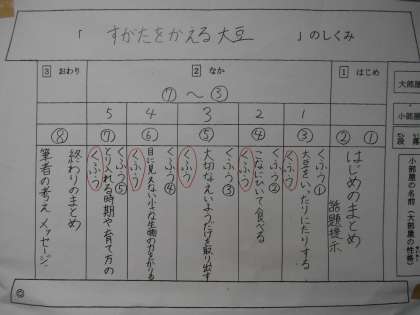 「 すがたをかえる大豆 」のしくみ
大部屋
1 はじめ
2 なか
3 おわり
⑦～③
小部屋
1
2
3
4
5
段落
①
②
③
④
⑤
⑥
⑦
⑧
小部屋の名前（大部屋の性格）
はじめのまとめ
話題提示
くふう①
大豆をいったりにたりする
くふう
くふう②
こなにひいて食べる
くふう
くふう③
大切なえいようだけを取り出す
くふう
くふう④
目に見えない小さな生物の力をかりる
くふう
くふう⑤
とり入れる時期や育て方の
くふう
終わりのまとめ
筆者の考え メッセージ
◎